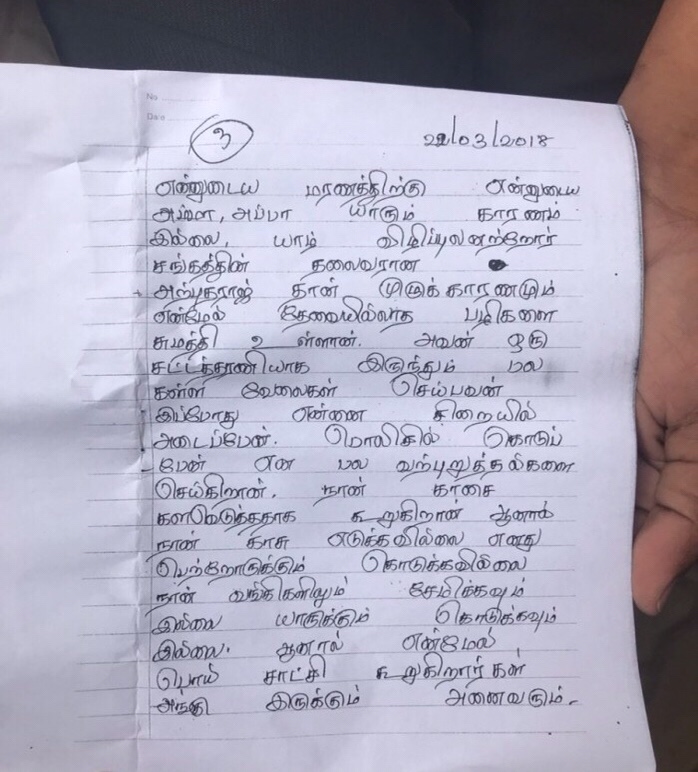 No
Date
3
22/03/2018
என்னுடைய மரணத்திற்கு என்னுடைய
அம்மா, அப்பா யாரும் காரணம்
இல்லை, யாழ் விழிப்புலனற்றோர்
சங்கத்தின் தலைவரான
தான் முழுக் காரணமும்
என்மேல் தேவையில்லாத பழிகளை
சுமத்தி உள்ளான். அவன் ஒரு
சட்டத்தரணியாக இருந்தும் பல
கள்ள வேலைகள் செய்பவன்
இப்போது என்னை சிறையில்
அடைப்பேன். பொலிசில் கொடுப்
பேன் என பல வற்புறுத்தல்களை
செய்கிறான். நான் காசை
களவெடுத்ததாக கூறுகிறான் ஆனால்
நான் காசு எடுக்கவில்லை எனது
பெற்றோருக்கும் கொடுக்கவில்லை
நான் வங்கிகளிலும் சேமிக்கவும்
இல்லை யாருக்கும் கொடுக்கவும்
இல்லை. ஆனால் என்மேல்
பொய் சாட்சி கூறுகிறார்கள்
இருக்கும் அனைவரும்.